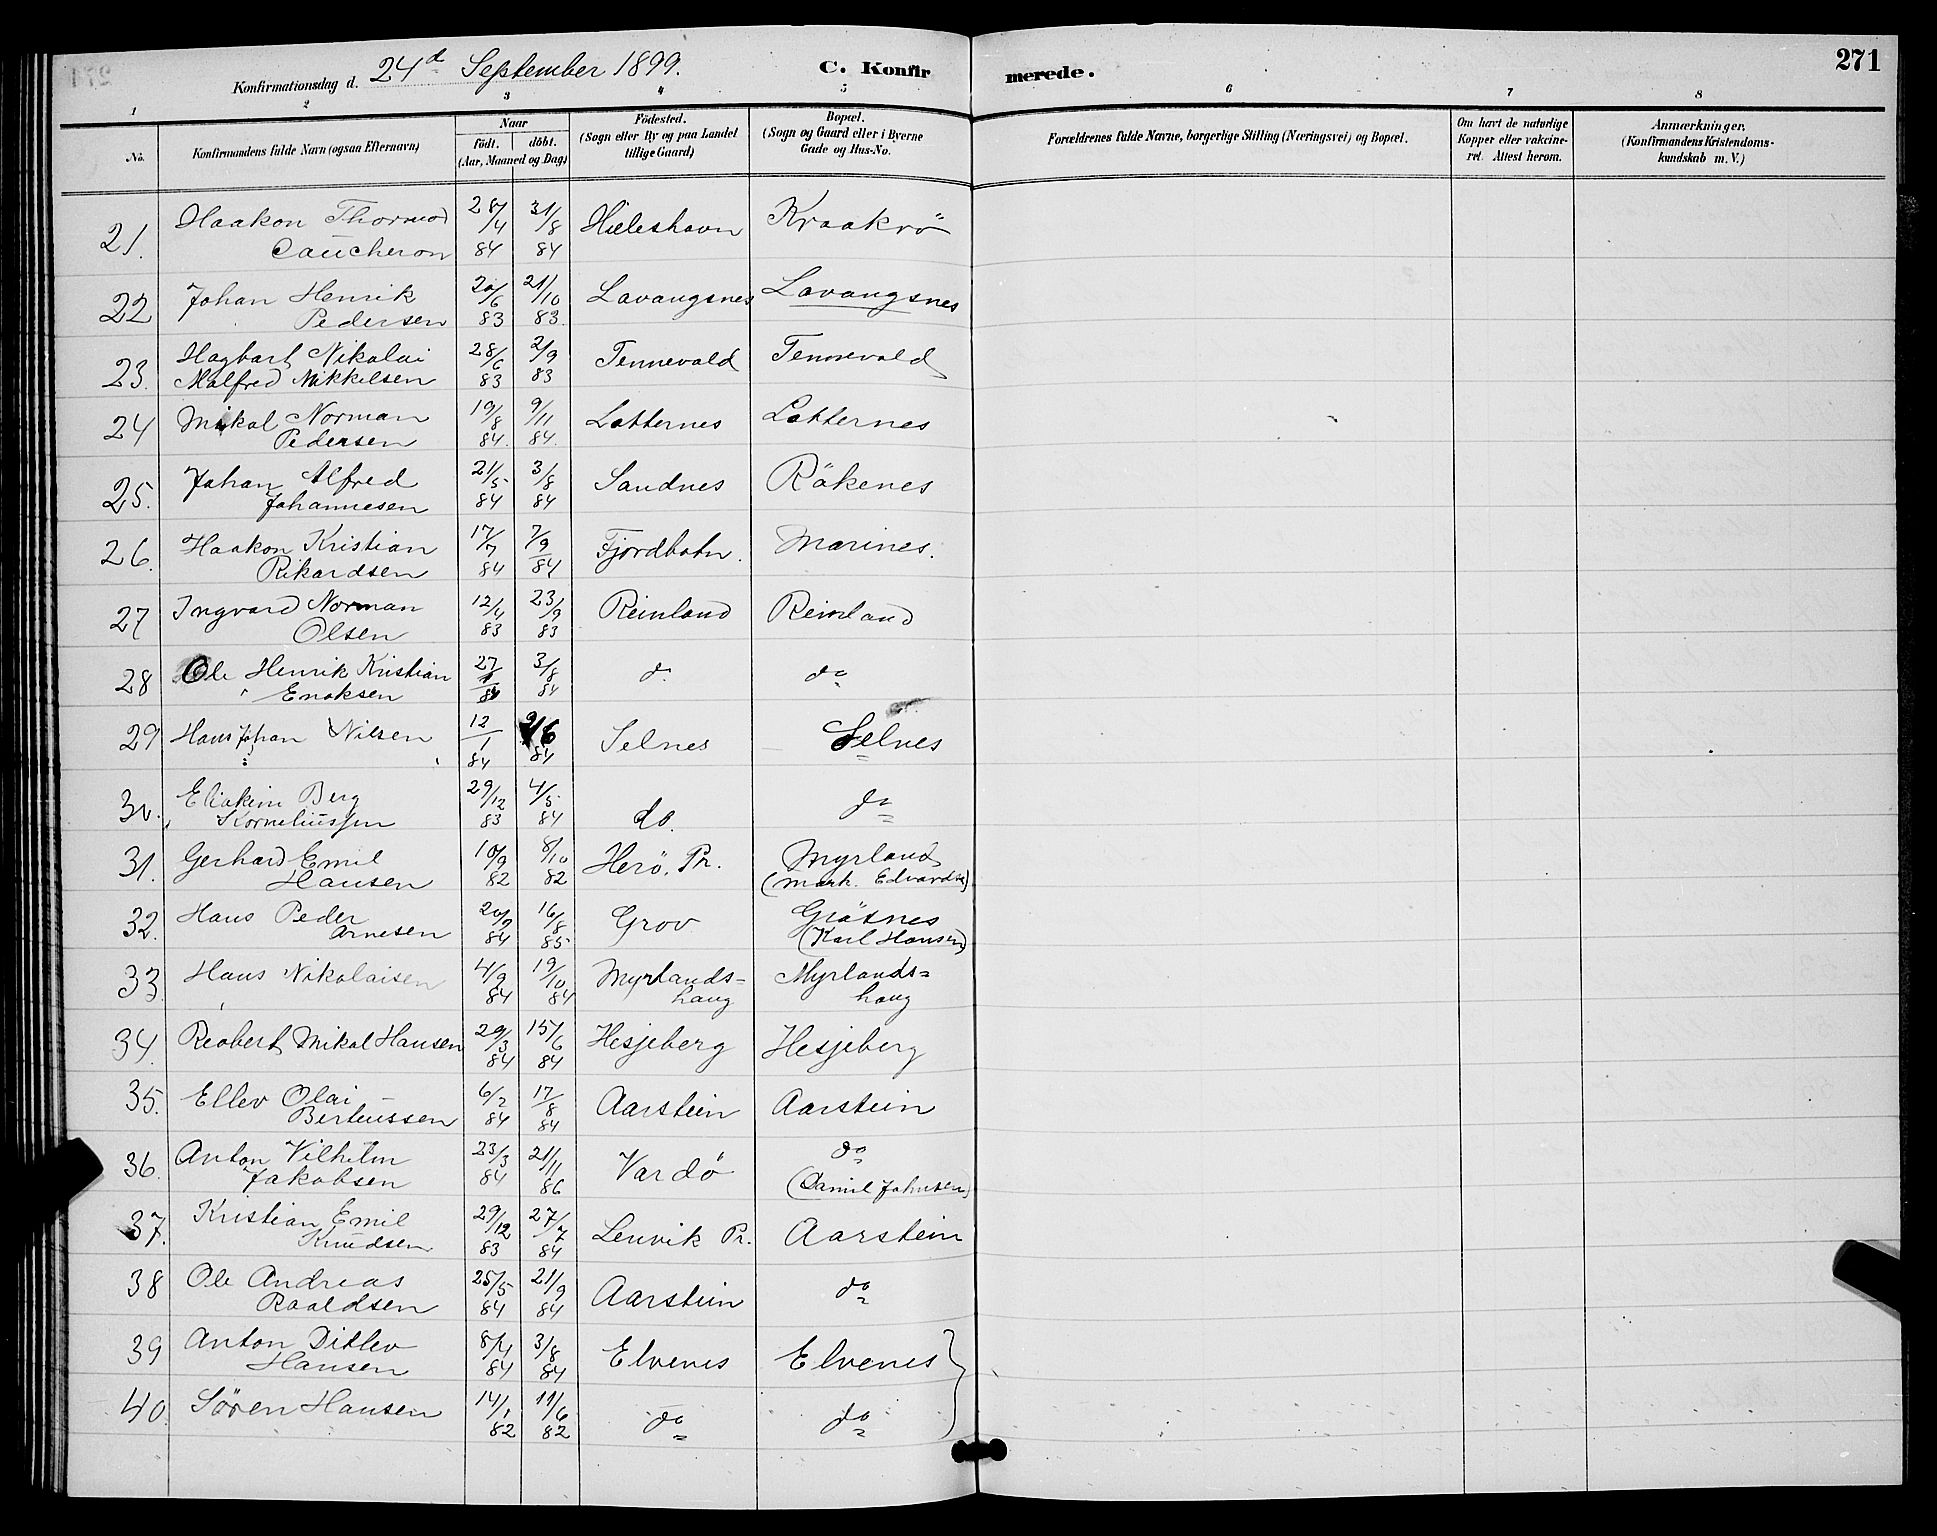 Konfirmationsdag d. 24d September 1899. C. Konfirmerede. 271
1 2 3 4 5 6 7 8
No. Konfirmandens fulde Navn (ogsaa Efternavn) Naar født. døbt. (Aar, Maaned og Dag) Fødested. (Sogn eller By og paa Landet tillige Gaard) Bopæl. (Sogn og Gaard eller i Byerne Gade og Hus-No. Forældrenes fulde Navne, borgerlige Stilling (Næringsvei) og Bopæl. Om havt de naturlige Kopper eller vakcineret. Attest herom. Anmærkninger. (Konfirmandens Kristendomskundskab m. V.)
21. Haakon Thormod Caucheron 28/4 84 31/8 84 Hieleshavn Kraakrö
22 Johan Henrik Pedersen 20/6 83 21/10 83. Lavangsnes Lavangsnes
23. Hagbart Nikolai Malfred Mikkelsen 28/6 83 2/9 83 Tennevald Tennevald
24 Mikal Norman Pedersen 19/8 84. 9/11 84. Latternes Latternes
25. Johan Alfred Johannesen 21/5 84 3/8 84 Sandnes Rökenes
26. Haakon Kristian Rikardsen 17/7 84 7/9 84 Fjordbotn. Marines.
27 Ingvard Norman Olsen 12/4 83 23/9 83 Reinland Reinland
28 Ole Henrik Kristian Enoksen 27/ 84 3/8 84 do do
29 Hans Johan Nilsen 12/1 84 84 Selnes Selnes
30. Eliakim Berg Korneliussen 29/12 83 4/5 84 do. do
31. Gerhard Emil Hansen 10/9 82 8/10 82 Herö. Pr. Myrland (Mark. Edvards)
32. Hans Peder Arnesen 20/9 84 16/8 85 Grov Gräsnes (Karl Hansen)
33 Hans Nikolaisen 4/9 84 19/10 84 Myrlands= haug Myrlands= haug
34. Reobert Mikal Hansen 29/3 84 15/6 84 Hesjeberg Hesjeberg
35. Ellev Olai Berteussen 6/2 84 17/8 84 Aarstein Aarstein
36. Anton Vilhelm Jakobsen 23/3 84 21/11 86 Vardö do (Daniel Johnsen)
37. Kristian Emil Knudsen 29/12 83 27/7 84 Lenvik Pr. Aarstein
38 Ole Andreas Roaldsen 25/5 84 21/9 84 Aarstein do
39 Anton Ditlev Hansen 8/4 84 3/8 84 Elvenes Elvenes
40. Sören Hansen 14/1 82 11/6 82 do do